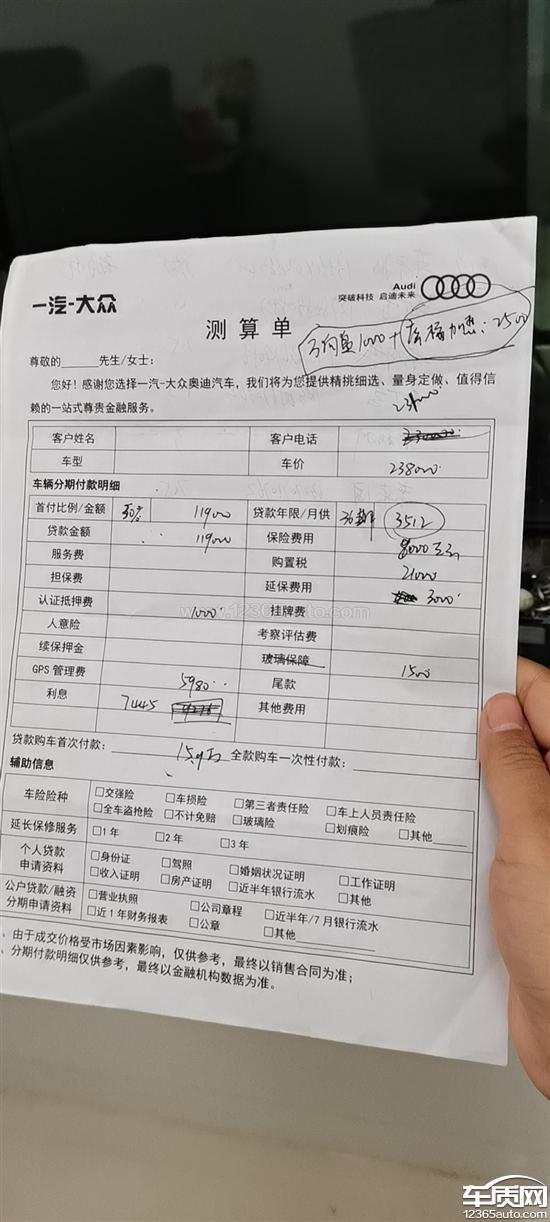 一汽-大众
Audi
突破科技 启迪未来
测算单
方向盘1000+
2500
尊敬的______先生/女士：
您好！感谢您选择一汽-大众奥迪汽车，我们将为您提供精挑细选、量身定做、值得信
赖的一站式尊贵金融服务。
客户姓名 客户电话
车型 车价 238000
车辆分期付款明细
首付比例/金额 50% 119000 贷款年限/月供 36期 3512
贷款金额 119000 保险费用 8000
服务费 购置税 21000
担保费 延保费用 3000
认证抵押费 1000 挂牌费
人意险 考察评估费
续保押金 玻璃保障 1500
GPS 管理费 5980 尾款
利息 7445 其他费用
www.12365auto.com
贷款购车首次付款： 15.9万 全款购车一次性付款：
辅助信息
车险险种 □交强险 □车损险 □第三者责任险 □车上人员责任险
□全车盗抢险 □不计免赔 □玻璃险 □划痕险 □其他
延长保修服务 □1 年 □2 年 □3 年
个人贷款申请资料 □身份证 □驾照 □婚姻状况证明 □工作证明
□收入证明 □房产证明 □近半年银行流水 □其他
公户贷款/融资分期申请资料 □营业执照 □公司章程 □近半年/7 月银行流水
□近 1 年财务报表 □公章 □其他
、由于成交价格受市场因素影响，仅供参考，最终以销售合同为准；
、分期付款明细仅供参考，最终以金融机构数据为准。
车质网
12365auto.com